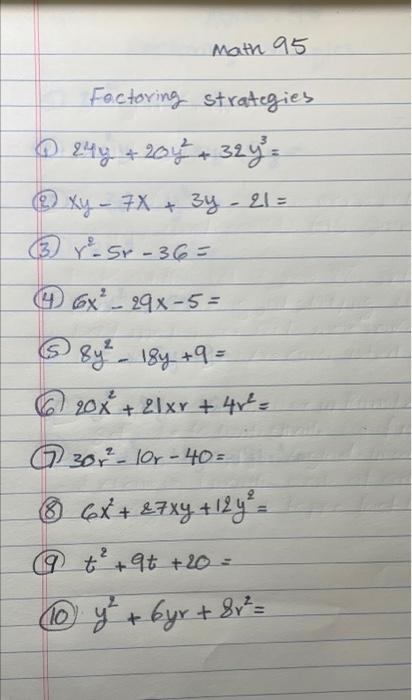 Math 95
Factoring strategies
① 24y + 20y² + 32y³ =
② xy - 7x + 3y - 21 =
③ r² - 5r - 36 =
④ 6x² - 29x - 5 =
⑤ 8y² - 18y + 9 =
⑥ 20x² + 21xr + 4r² =
⑦ 30r² - 10r - 40 =
⑧ 6x² + 27xy + 12y² =
⑨ t² + 9t + 20 =
⑩ y² + 6yr + 8r² =